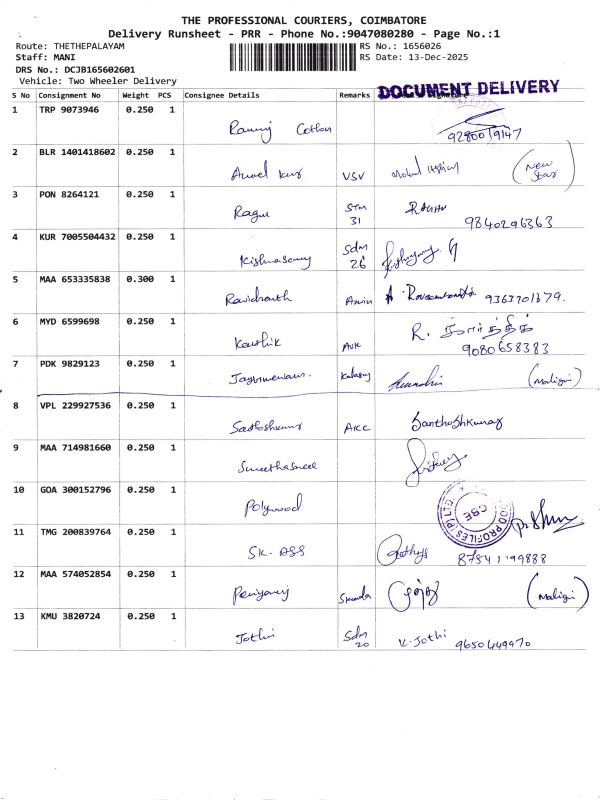 THE PROFESSIONAL COURIERS, COIMBATORE
Delivery Runsheet - PRR - Phone No.:9047080280 - Page No.:1
Route: THETHEPALAYAM
RS No.: 1656026
Staff: MANI
RS Date: 13-Dec-2025
DRS No.: DCJB165602601
Vehicle: Two Wheeler Delivery
DOCUMENT DELIVERY
S No Consignment No Weight PCS Consignee Details Remarks
1 TRP 9073946 0.250 1
Cotton 9280019147
2 BLR 1401418602 0.250 1
VSV (New Star)
3 PON 8264121 0.250 1
Ragu STM 31 9840296363
4 KUR 7005504432 0.250 1
Kishnasamy Sdm 26
5 MAA 653335838 0.300 1
Ravichanth
6 MYD 6599698 0.250 1
Kaushik AVK R. கார்த்திக்
9080658383
7 PDK 9829123 0.250 1
(Maligai)
8 VPL 229927536 0.250 1
Sathoshkumar AKC Santhoshkumar
9 MAA 714981660 0.250 1
10 GOA 300152796 0.250 1
Polywood
PROFILES (P) LTD.
CBE
11 TMG 200839764 0.250 1
SK. ASS
12 MAA 574052854 0.250 1
(Maligai)
13 KMU 3820724 0.250 1
Jothi Sdm 20 K. Jothi 9650449970